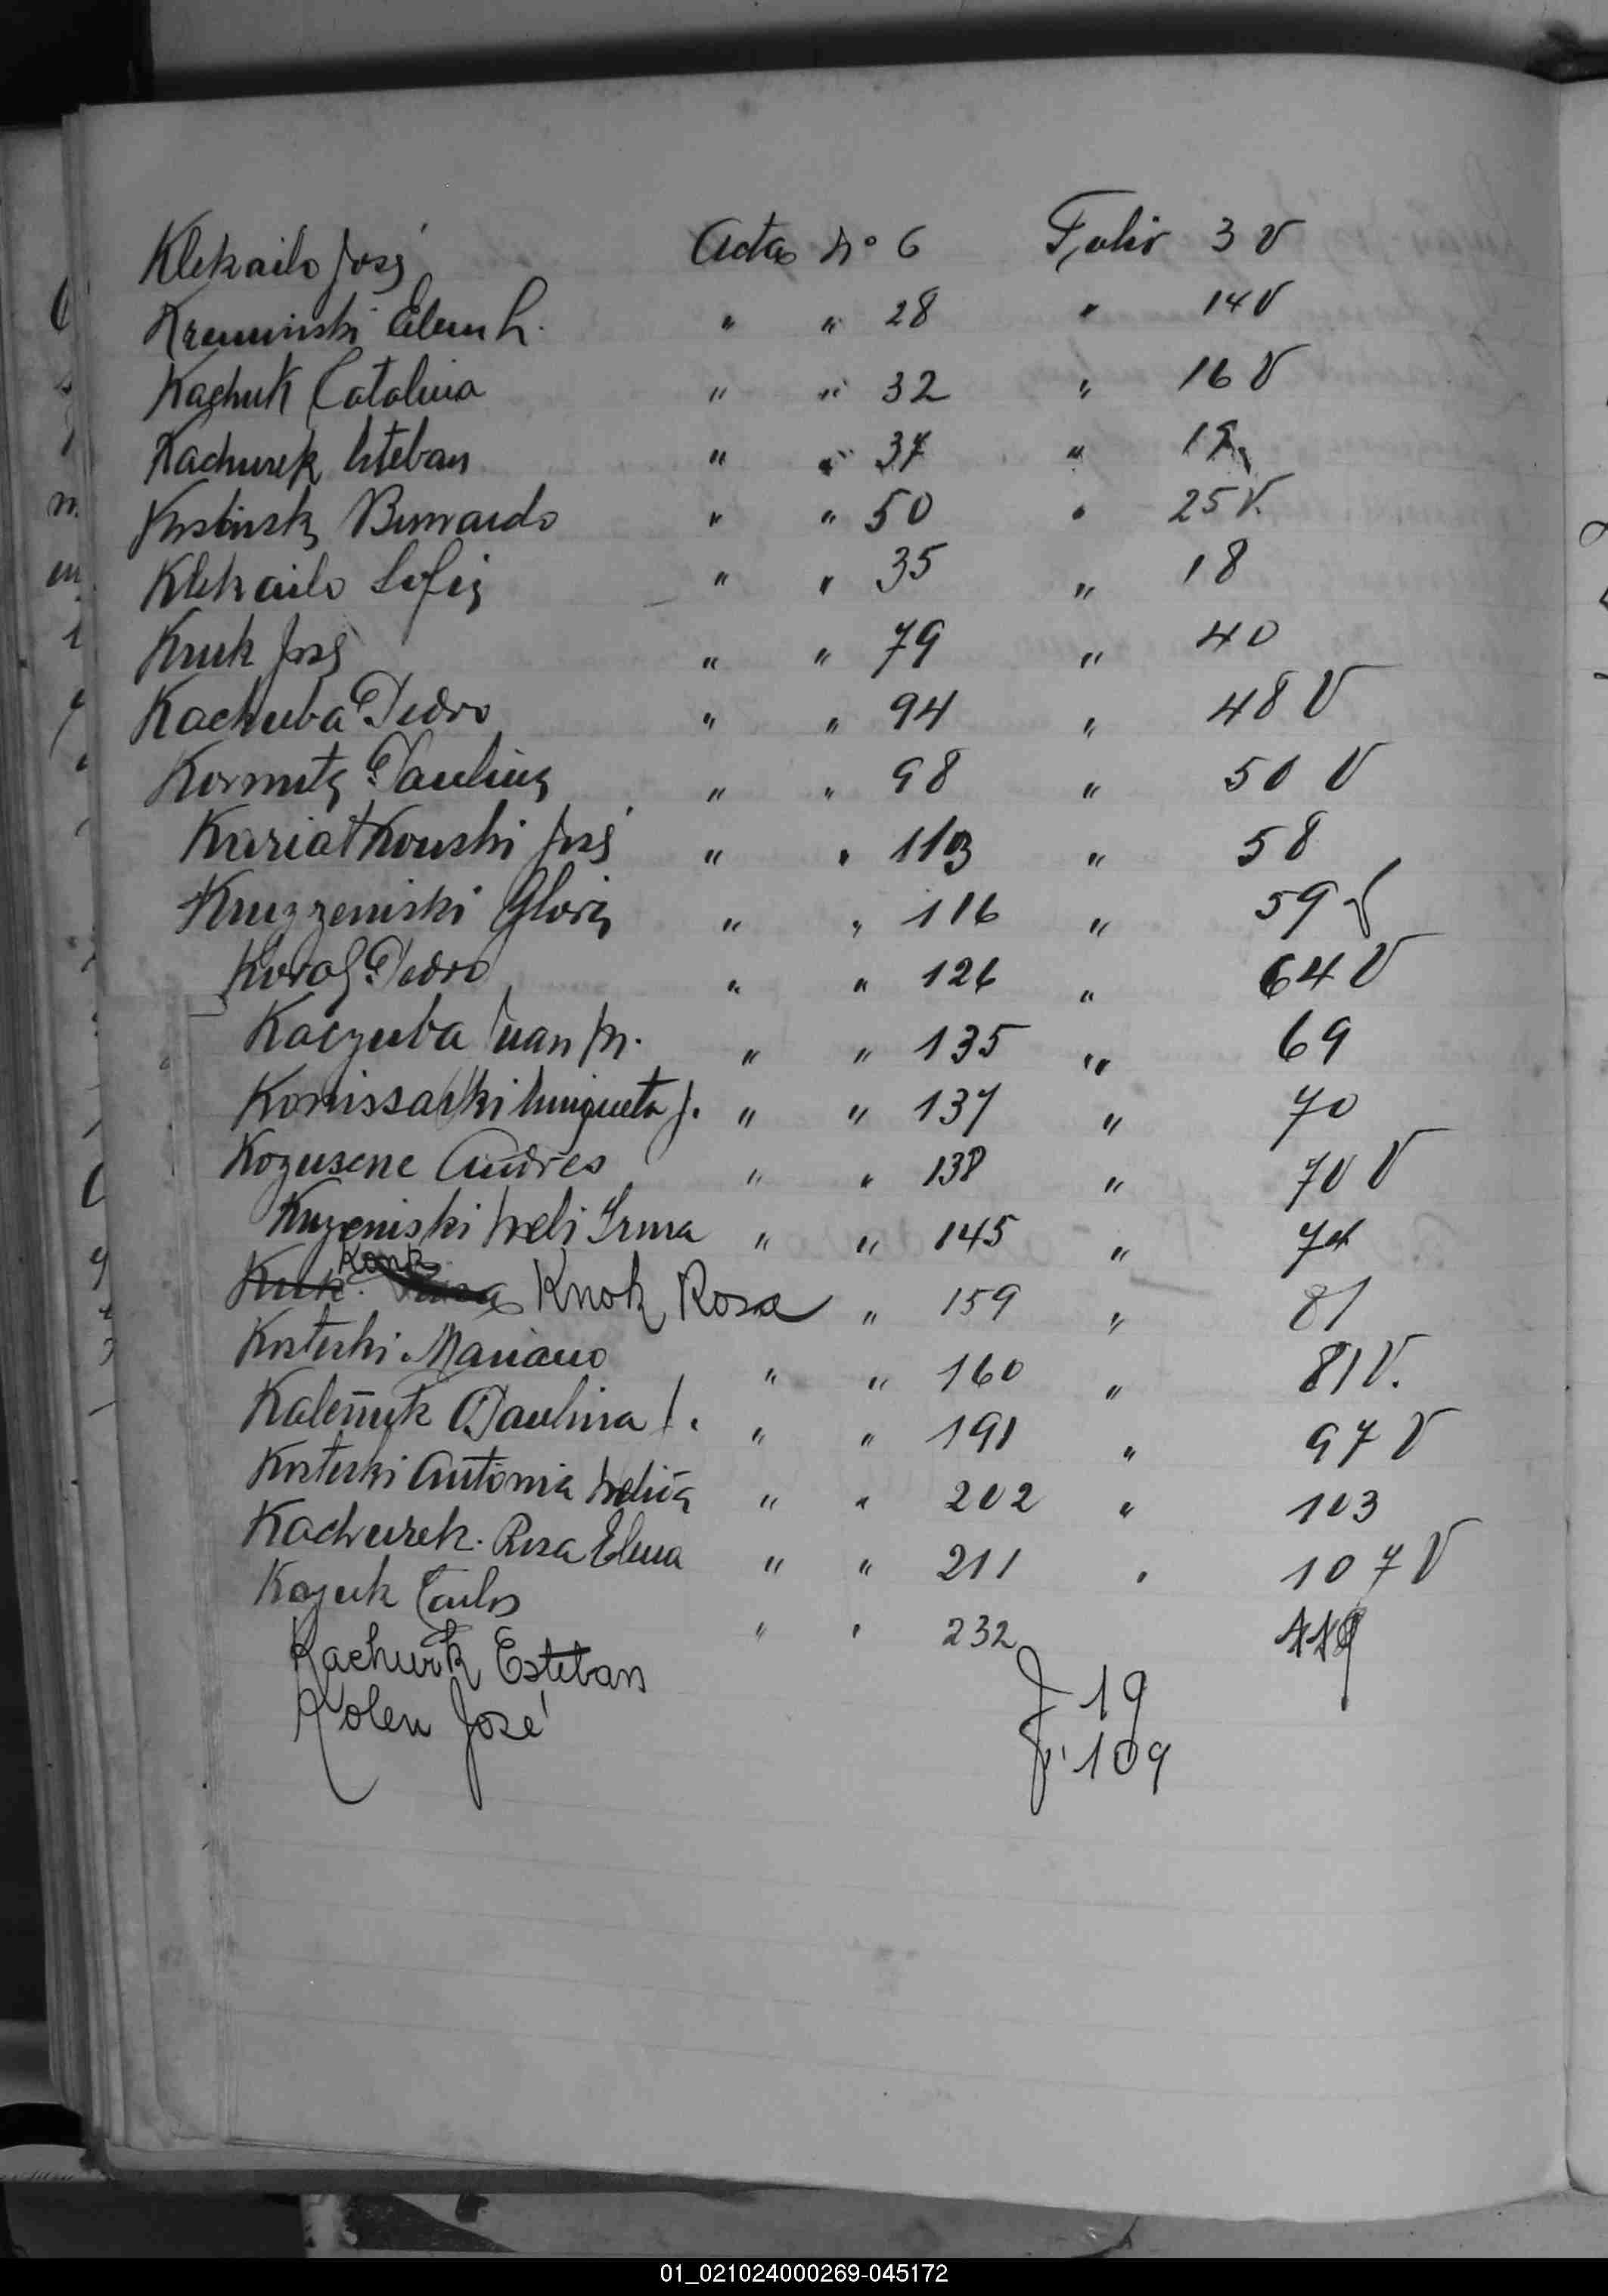 Klekailo José Acta Nº 6 Folio 3 V
Kreminski Elena L. " " 28 " 14 V
Kachuk Catalina " " 32 " 16 V
Kachurek Esteban " " 37 " 19
Bernardo " " 50 " 25 V.
Klekailo Sofia " " 35 " 18
Kruk José " " 79 " 40
Kachuba Pedro " " 94 " 48 V
Kormutz Paulina " " 98 " 50 V
Kuriatkouski José " " 113 " 58
Kruzzeniski Gloria " " 116 " 59
Koral Pedro " " 126 " 64 V
Kaczuba Juan M. " " 135 " 69
Komissarki Enriqueta J. " " 137 " 70
Kozusene Andres " " 138 " 70 V
Kuzeniski Irma " " 145 " 74
Kruk Konk Knok Rosa " 159 " 81
Kosteski Mariano " " 160 " 81 V.
Kaleñuk Paulina " " 191 " 97 V
Kosteski Antonia " " 202 " 103
Kachurek Rosa Elena " " 211 " 107 V
Kozuk Carlos " " 232 119
Kachurk Esteban F 19
Kolen José F. 109
01_021024000269-045172